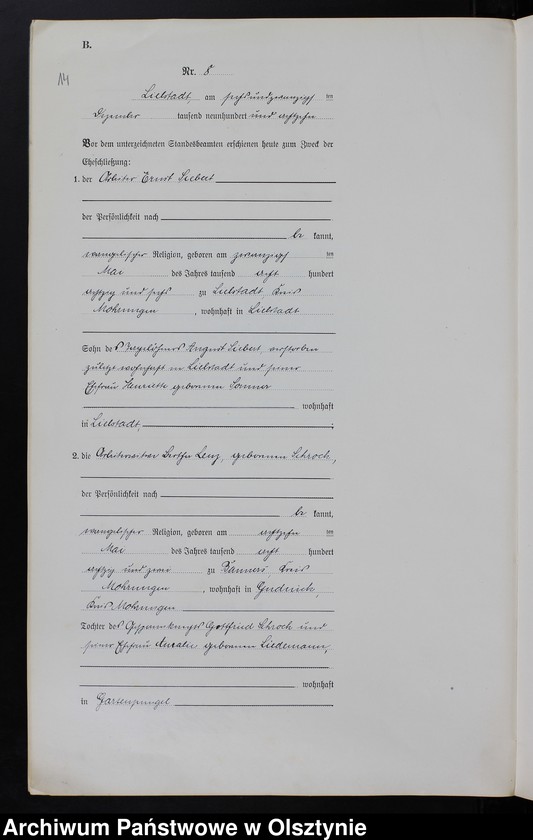 B.
14
Nr. 8
Liebstadt, am sechsundzwanzigsten
Dezember tausend neunhundert und achtzehn
Vor dem unterzeichneten Standesbeamten erschienen heute zum Zweck der
Eheschließung:
1. der Arbeiter Ernst Siebert
der Persönlichkeit nach
be kannt,
evangelischer Religion, geboren am zwanzigsten
Mai des Jahres tausend acht hundert
achtzig und sechs zu Liebstadt Kreis
Mohrungen, wohnhaft in Liebstadt
Sohn des August Siebert, verstorben
zuletzt wohnhaft in Liebstadt und seiner
Ehefrau Henriette geborenen
wohnhaft
in Liebstadt,
2. die Arbeiterwitwe Bertha Lenz, geborenen Schroch,
der Persönlichkeit nach
be kannt,
evangelischer Religion, geboren am achtzehnten
Mai des Jahres tausend acht hundert
achtzig und zwei zu Kreis
Mohrungen, wohnhaft in
Kreis Mohrungen
Tochter des Gottfried Schroch und
seiner Ehefrau geborenen Liedemann,
wohnhaft
in
Archiwum Państwowe w Olsztynie